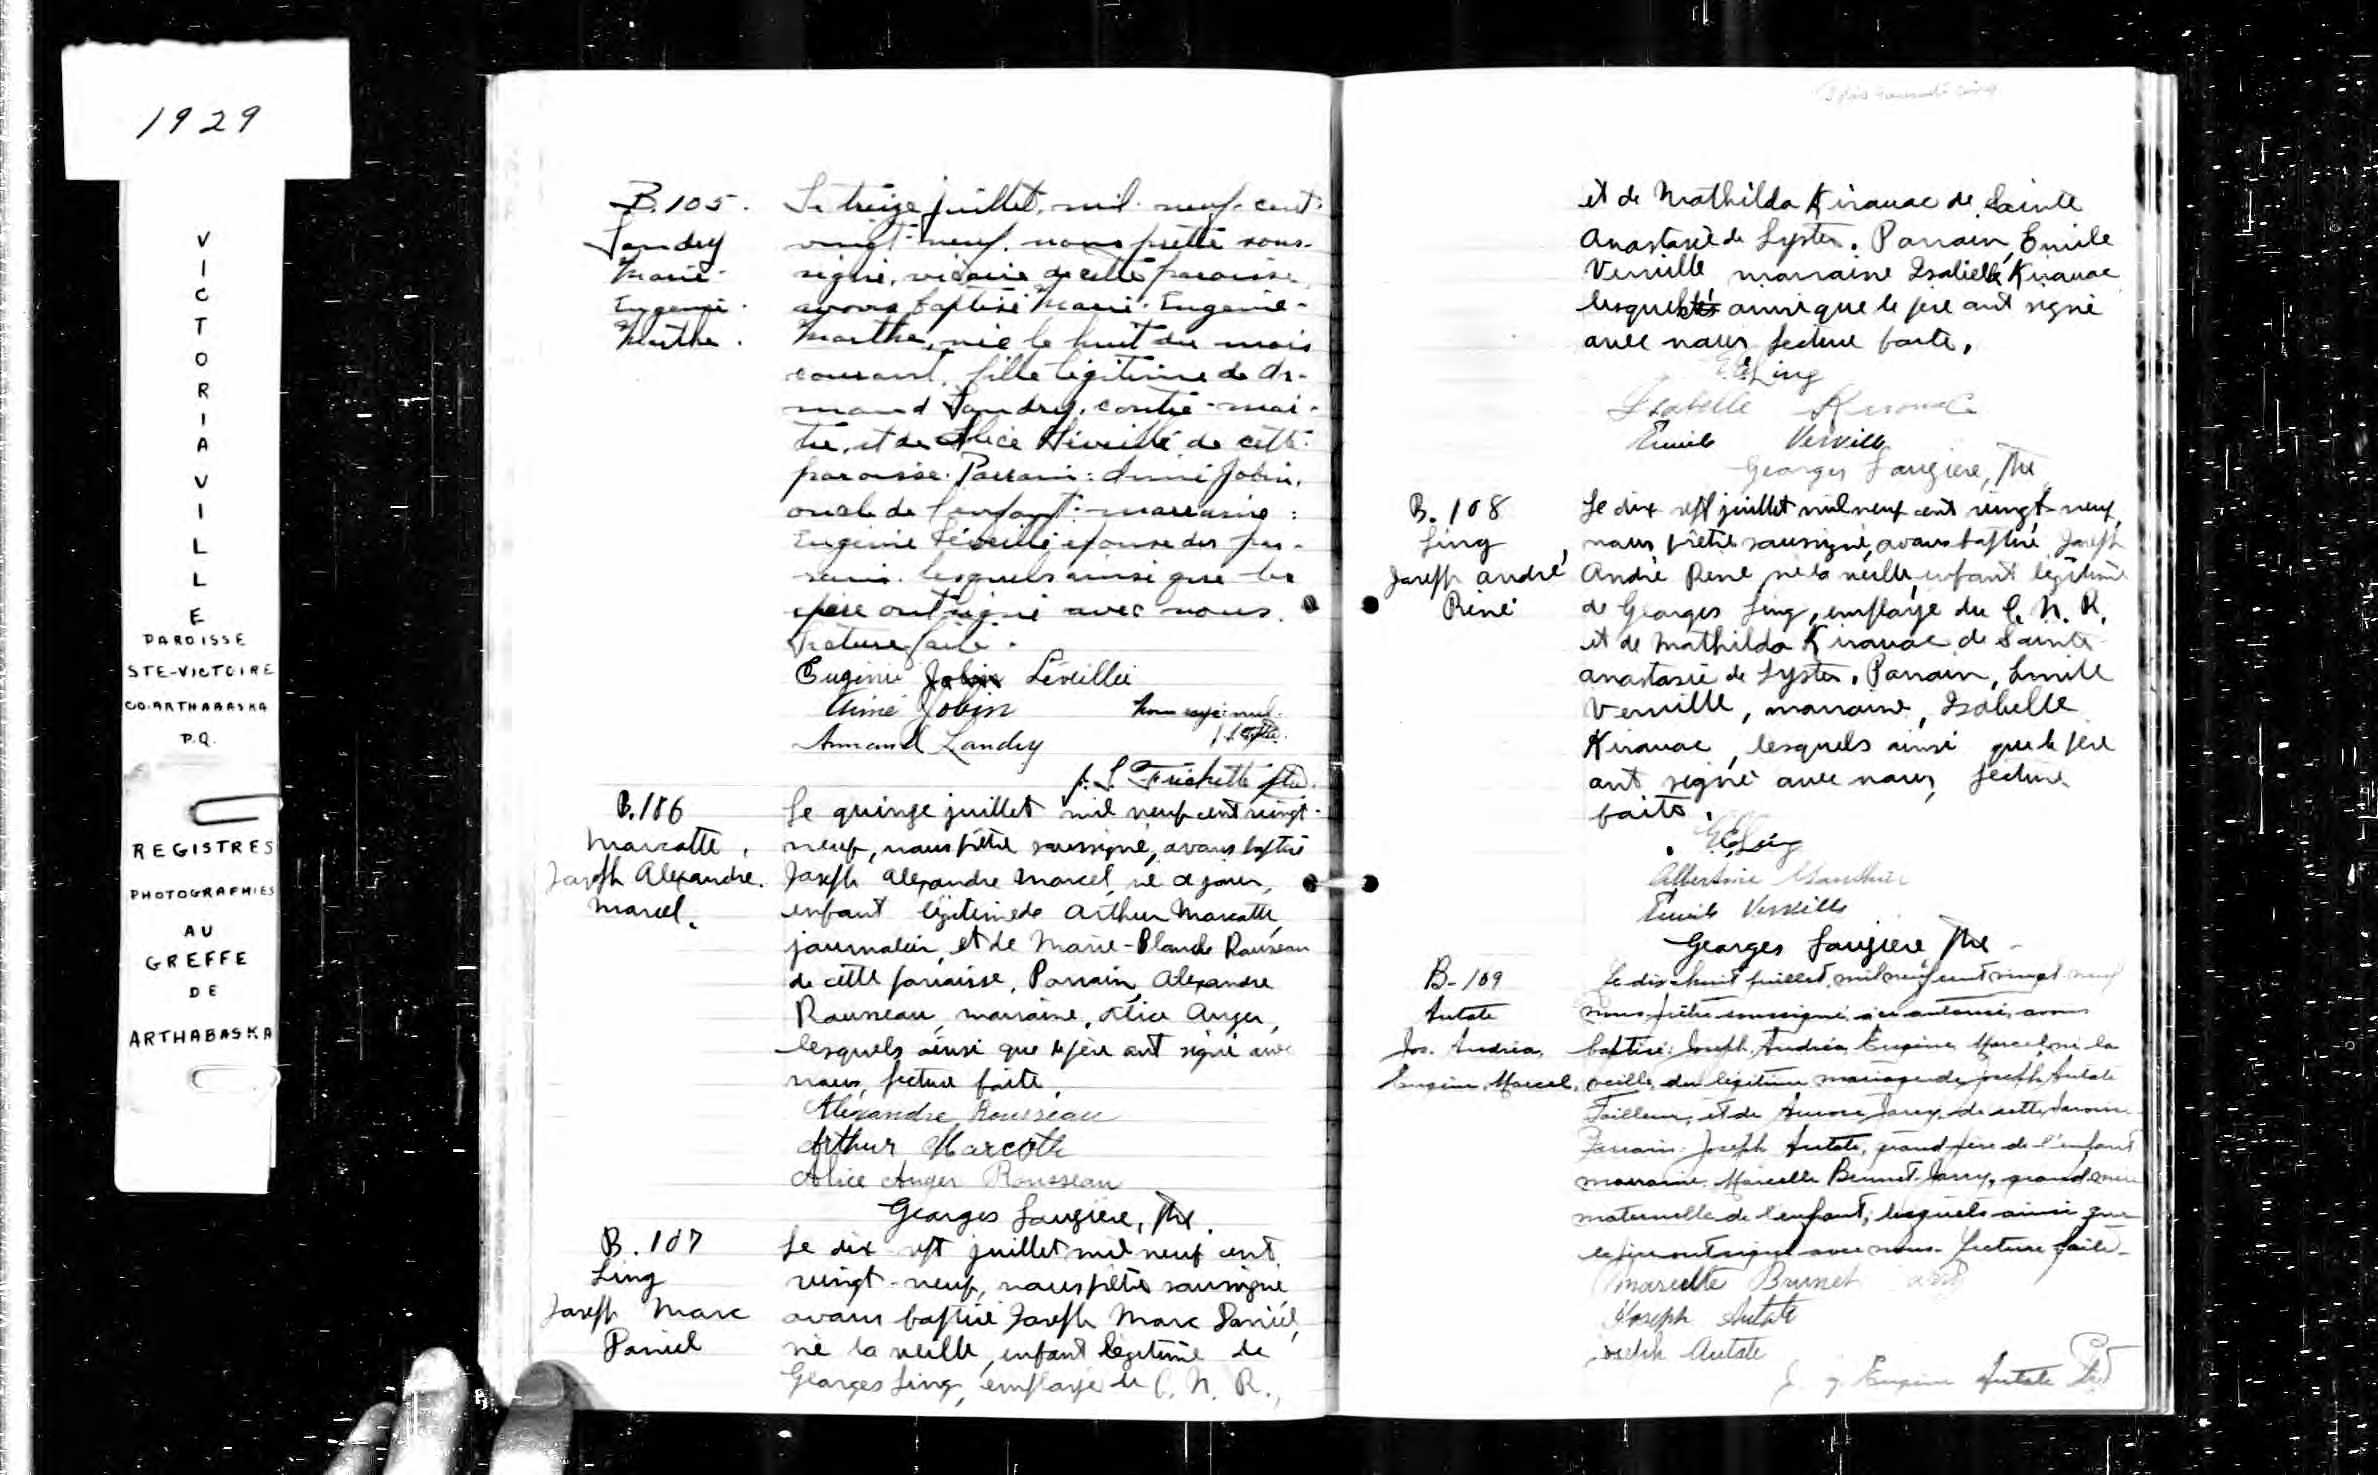 1929
VICTORIAVILLE
PAROISSE
STE-VICTOIRE
CO. ARTHABASKA
P.Q.
REGISTRES
PHOTOGRAPHIES
AU
GREFFE
DE
ARTHABASKA
B. 105.
Landry
Marie-
Eugénie-
Marthe.
Le treize juillet, mil-neuf-cent-
vingt-neuf, nous prêtre sous-
signé, vicaire de cette paroisse,
avons baptisé Marie-Eugénie-
Marthe, née le huit du mois
courant, fille légitime de Ar-
mand Landry, contre-mai-
tre, et de Alice Léveillé de cette
paroisse. Parrain: Aimé Jobin,
oncle de l'enfant: marraine:
Eugénie Léveillé épouse du par-
rain. lesquels ainsi que le
père ont signé avec nous.
Lecture faite.
Eugénie Léveillée
Aimé Jobin
Armand Landry
J. L. Frichette ptre.
B. 106
Marcotte,
Joseph Alexandre.
Marcel.
Le quinze juillet mil neuf cent vingt-
neuf, nous prêtre soussigné, avons baptisé
Joseph Alexandre Marcel, né ce jour,
enfant légitime de Arthur Marcotte,
journalier, et de Marie-Blanche Rousseau
de cette paroisse, Parrain, Alexandre
Rousseau, marraine, Alice Anger,
lesquels ainsi que le père ont signé avec
nous, lecture faite,
Alexandre Rousseau
Arthur Marcotte
Alice Anger Rousseau
Georges Laugière, Ptre.
B. 107
Ling
Joseph Marc
Daniel
Le dix-sept juillet mil neuf cent
vingt-neuf, nous prêtre soussigné
avons baptisé Joseph Marc Daniel,
né la veille, enfant légitime de
Georges Ling, employé du C. N. R.,
et de Mathilda Kirouac de Sainte
Anastasie de Lyster. Parrain, Emile
Verville marraine Isabelle Kirouac
lesquels ainsi que le père ont signé
avec nous, lecture faite,
Ling
Isabelle Kirouac
Emile Verville
Georges Laugière, Ptre
B. 108
Ling,
Joseph André
René
Le dix sept juillet mil neuf cent vingt-neuf,
nous prêtre soussigné, avons baptisé Joseph
André René né la veille, enfant légitime
de Georges Ling, employé du C. N. R.
et de Mathilda Kirouac de Sainte
Anastasie de Lyster. Parrain, Emile
Verville, marraine, Isabelle
Kirouac, lesquels ainsi que le père
ont signé avec nous, lecture
faite.
Ling
Albertine Gauthier
Emile Verville
Georges Laugière Ptre
B-109
Autate
Jos. Andréa,
Eugène, Marcel,
Le dix-huit juillet, mil neuf cent vingt-neuf
nous prêtre soussigné, à ce autorisé, avons
baptisé: Joseph, Andréa, Eugène, Marcel, né la
veille, du légitime mariage de Joseph Autate
Tailleur, et de Aurore Jarry, de cette paroisse.
Parrain. Joseph Autate, grand-père de l'enfant
marraine. Marcelle Brunet-Jarry, grand'mère
maternelle de l'enfant; lesquels ainsi que
le père ont signé avec nous. Lecture faite-
Brunet
Joseph Autate
Joseph Autate
J. Eugène Autate Ptre